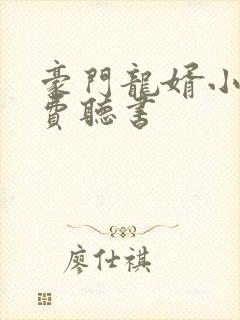 豪門龍婿小
費聽書
廖仕祺